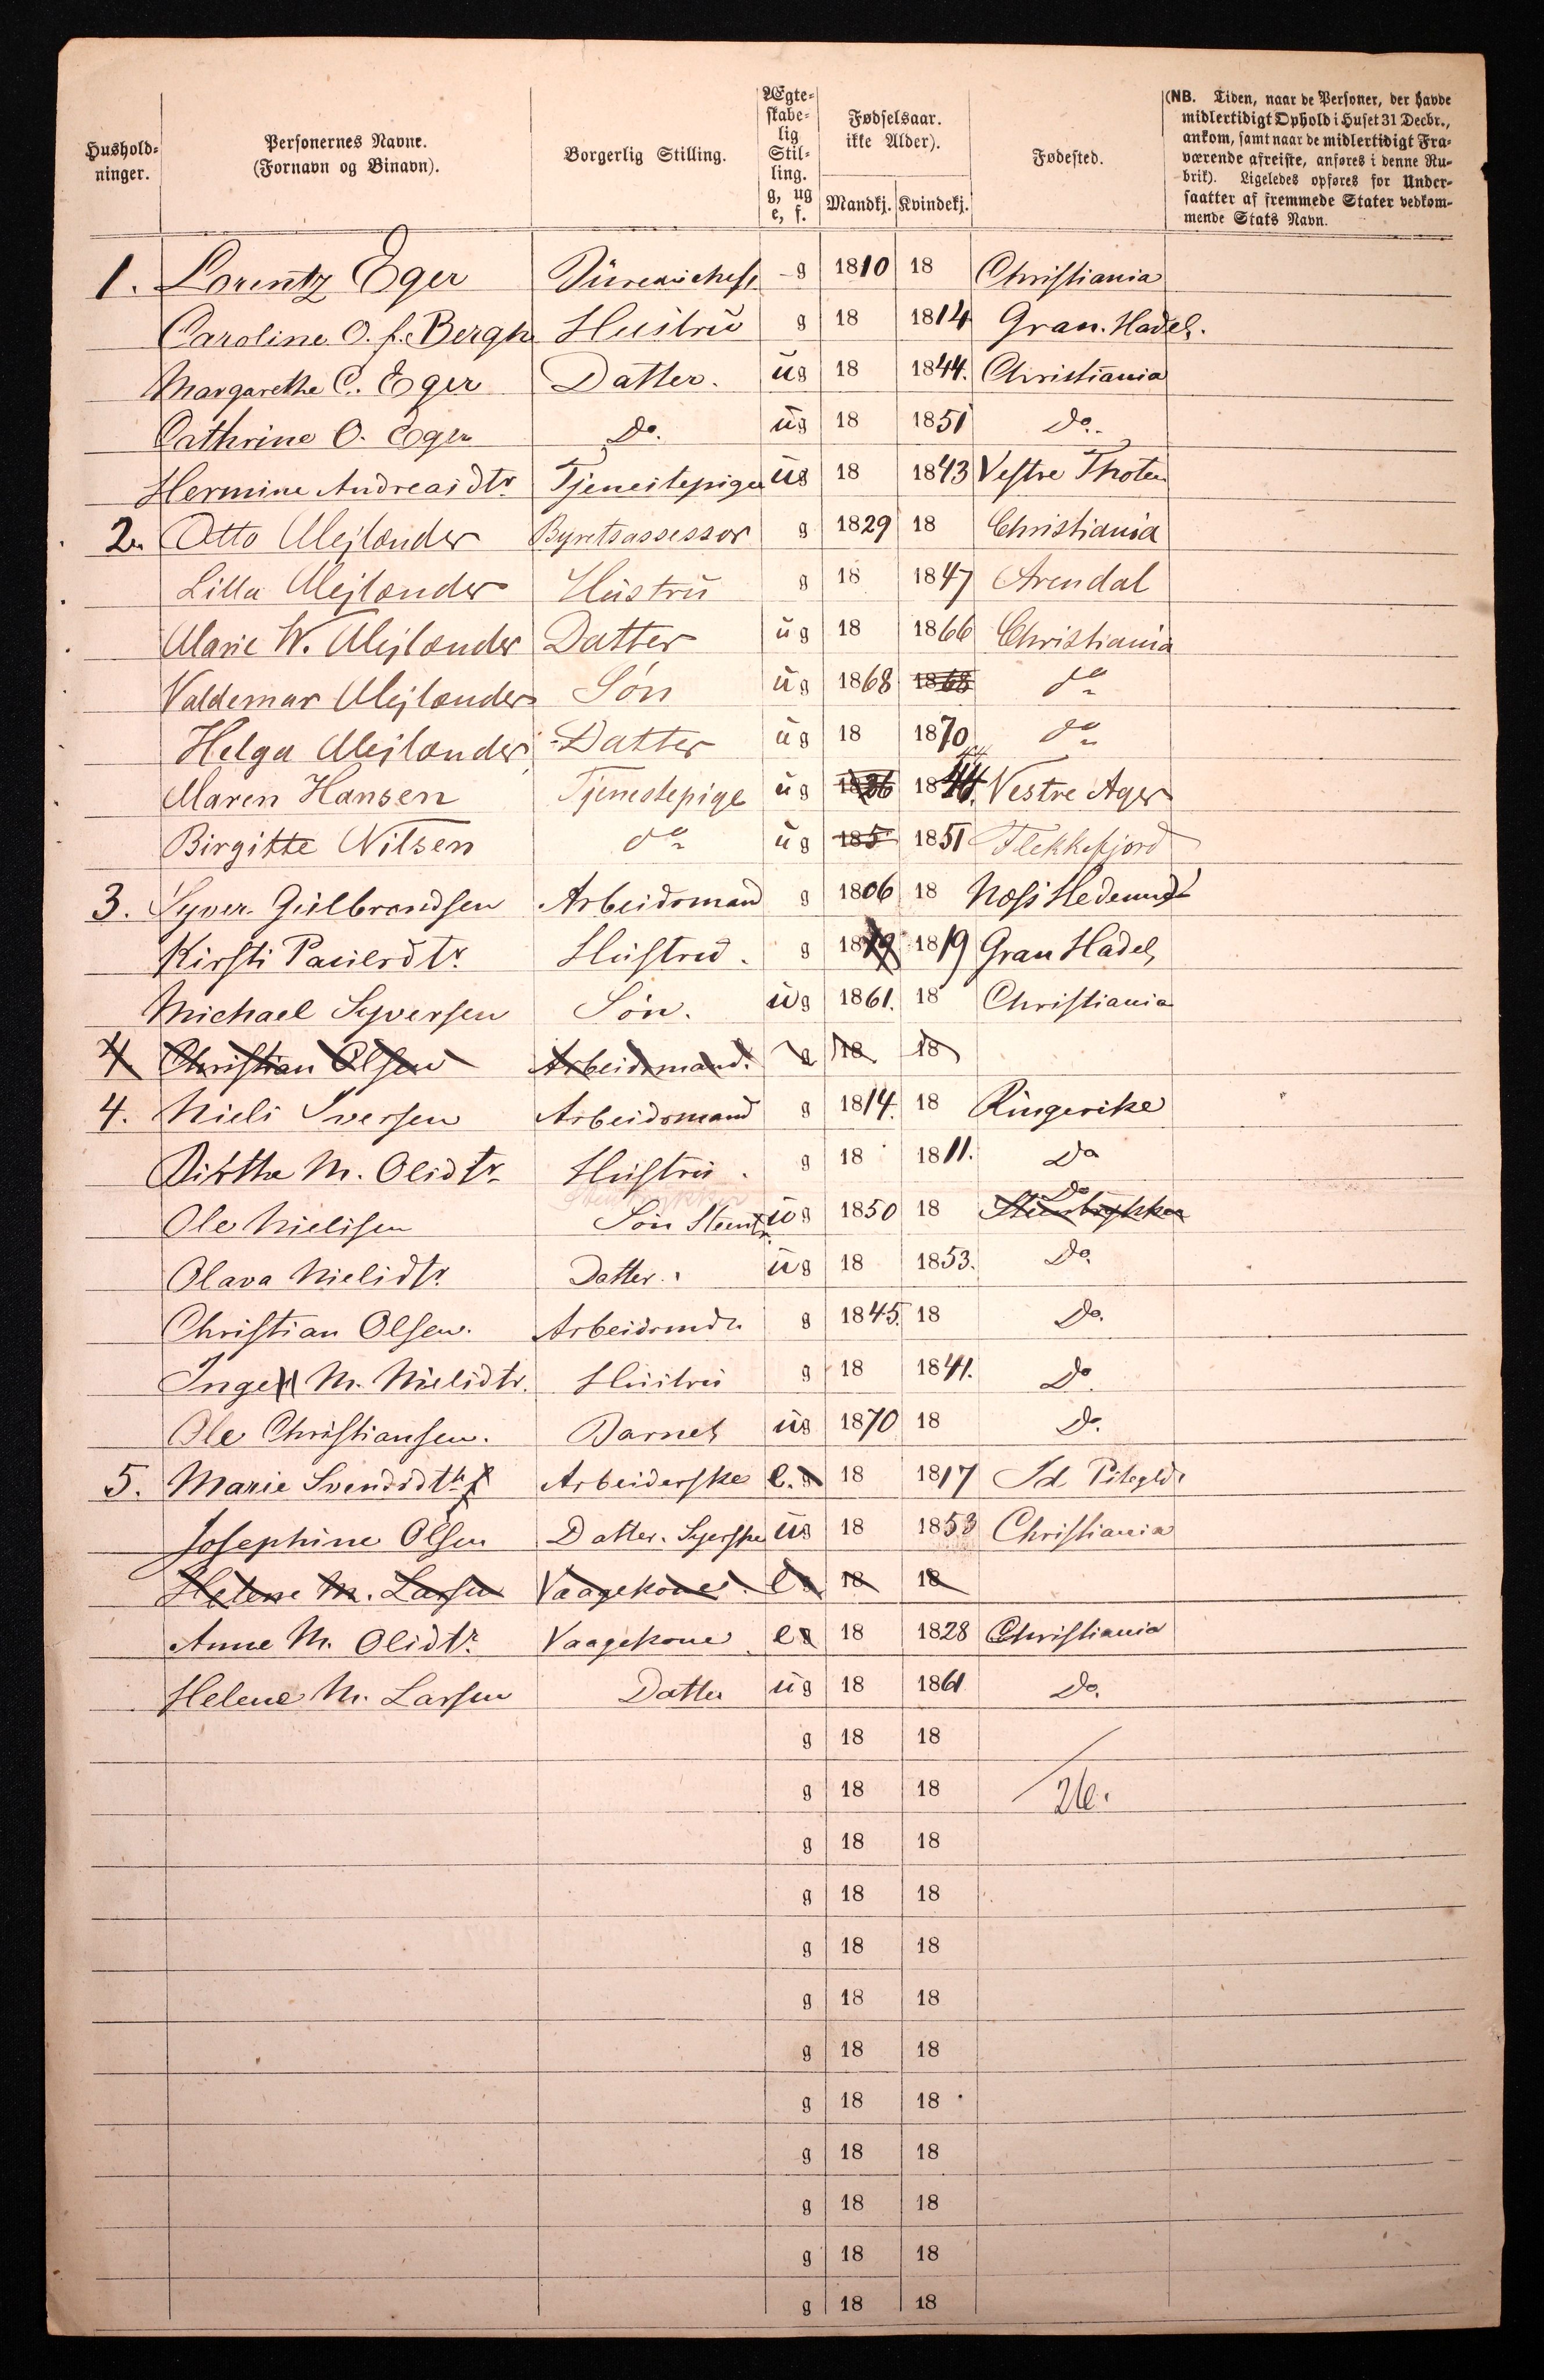 Hushold-
ninger.
Personernes Navne.
(Fornavn og Binavn).
Borgerlig Stilling.
Ægte-
skabe-
lig
Stil-
ling.
g, ug
e, f.
Fødselsaar.
ikke Alder).
Mandkj. Kvindekj.
Fødested.
(NB. Tiden, naar de Personer, der havde
midlertidigt Ophold i Huset 31 Decbr.,
ankom, samt naar de midlertidigt Fra-
værende afreiste, anføres i denne Ru-
brik). Ligeledes opføres for Under-
saatter af fremmede Stater vedkom-
mende Stats Navn.
1. Lorentz Eger Bureauchef g 1810 18 Christiania
Caroline O. f. Bergh Hustru g 18 1814 Gran. Hadel.
Margarethe C. Eger Datter. ug 18 1844. Christiania
Cathrine O. Eger Do. ug 18 1851 Do.
Hermine Andreasdtr. Tjenestepige ug 18 1843 Vestre Thoten
2. Otto Mejlænder Byretsassessor g 1829 18 Christiania
Lilla Mejlænder Hustru g 18 1847 Arendal
Marie W. Mejlænder Datter ug 18 1866 Christiania
Valdemar Mejlænder Søn ug 1868 1868 do
Helga Mejlænder Datter ug 18 1870 do
Maren Hansen Tjenestepige ug 1826 1844. Vestre Ager
Birgitte Nilsen do ug 185 1851 Flekkefjord
3. Syver Gulbrandsen Arbeidsmand g 1806 18 Næs Hedem
Kirsti Paulsdtr. Hustru. g 1819 1819 Gran Hadel,
Michael Syversen Søn. ug 1861. 18 Christiania
4 Christian Olsen Arbeidsmand. g 18 18
4. Niels Iversen Arbeidsmand g 1814. 18 Ringerike
Birthe M. Olsdtr. Hustru. g 18 1811. Do
Ole Nielsen Søn Steenh. ug 1850 18 Do Steenhugger
Olava Nielsdtr. Datter. ug 18 1853. Do.
Christian Olsen. Arbeidsmd. g 1845. 18 Do.
Inge M. Nielsdtr. Hustru g 18 1841. Do.
Ole Christiansen. Barnet ug 1870 18 Do.
5. Marie Svendsdtr Arbeiderske e. g 18 1817
Josephine Olsen Datter. Syerske ug 18 1853 Christiania
Helene M. Larsen Vaagekone. e g 18 18
Anne M. Olsdtr. Vaagekone e g 18 1828 Christiania
Helene M. Larsen Datter ug 18 1861 Do.
g 18 18
g 18 18 26.
g 18 18
g 18 18
g 18 18
g 18 18
g 18 18
g 18 18
g 18 18
g 18 18
g 18 18
g 18 18